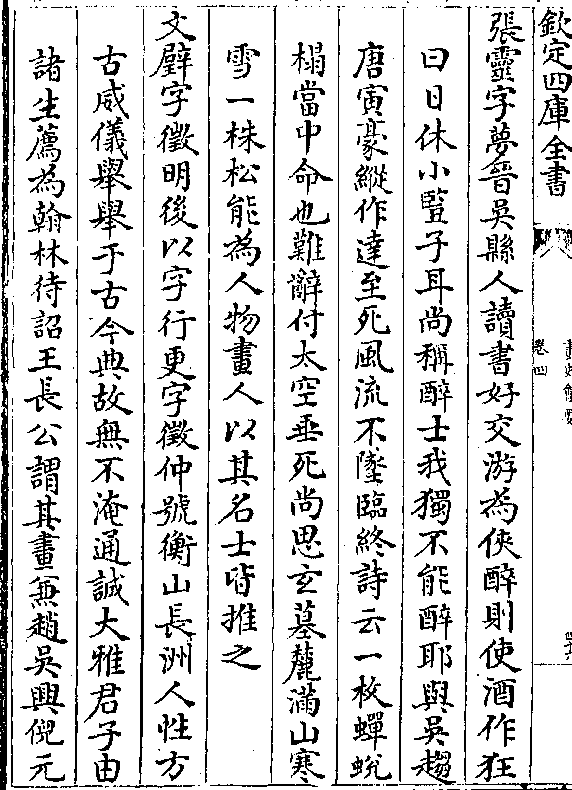 欽定四庫全書
畫史會要
卷四
張靈字夢晉吳縣人讀書好交游為俠醉則使酒作狂
曰日休小豎子耳尚稱醉士我獨不能醉耶與吳趨
唐寅豪縱作達至死風流不墜臨終詩云一枚蟬蛻
榻當中命也難辭付太空垂死尚思玄墓麓滿山寒
雪一株松能為人物畫人以其名士皆推之
文壁字徵明後以字行更字徵仲號衡山長洲人性方
古威儀舉舉于古今典故無不淹通誠大雅君子由
諸生薦為翰林待詔王長公謂其畫兼趙吳興倪元